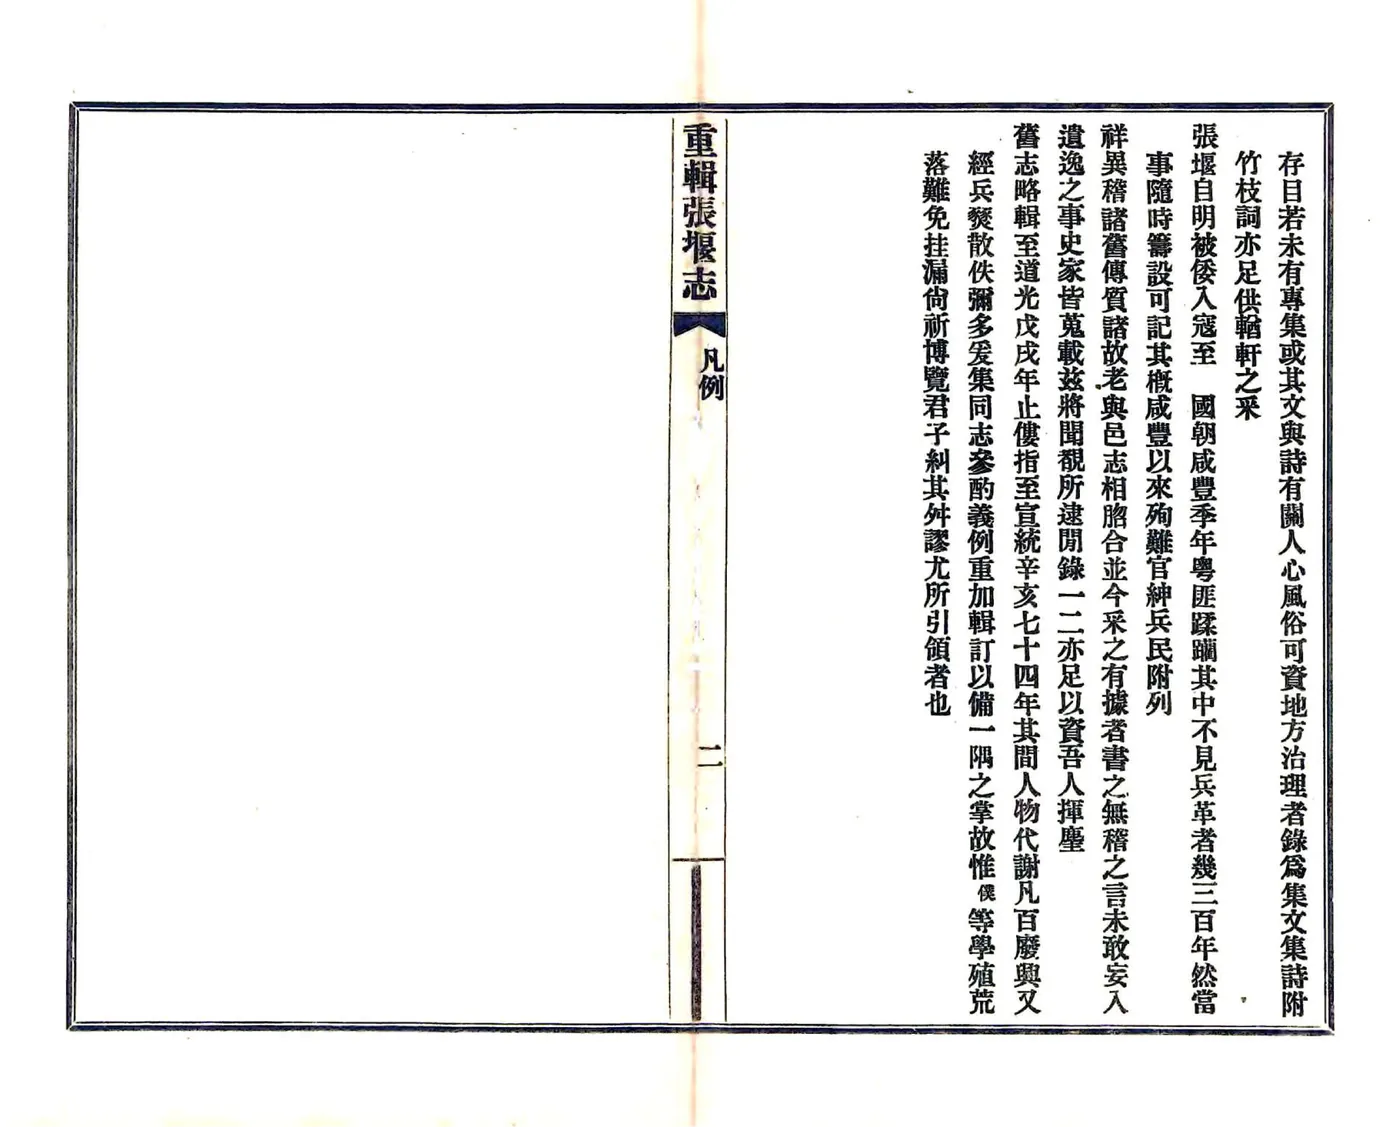 存目若未有專集或其文與詩有關人心風俗可資地方治理者錄爲集文集詩附
竹枝詞亦足供輶軒之采
張堰自明被倭入寇至　國朝咸豐季年粵匪蹂躪其中不見兵革者幾三百年然當
事隨時籌設可記其槪咸豐以來殉難官紳兵民附列
祥異稽諸舊傳質諸故老與邑志相脗合並今采之有據者書之無稽之言未敢妄入
遺逸之事史家皆蒐載茲將聞覩所逮閒錄一二亦足以資吾人揮麈
舊志略輯至道光戊戌年止僂指至宣統辛亥七十四年其間人物代謝凡百廢興又
經兵燹散佚彌多爰集同志參酌義例重加輯訂以備一隅之掌故惟僕等學殖荒
落難免挂漏尙祈博覽君子糾其舛謬尤所引領者也
重輯張堰志
凡例
二